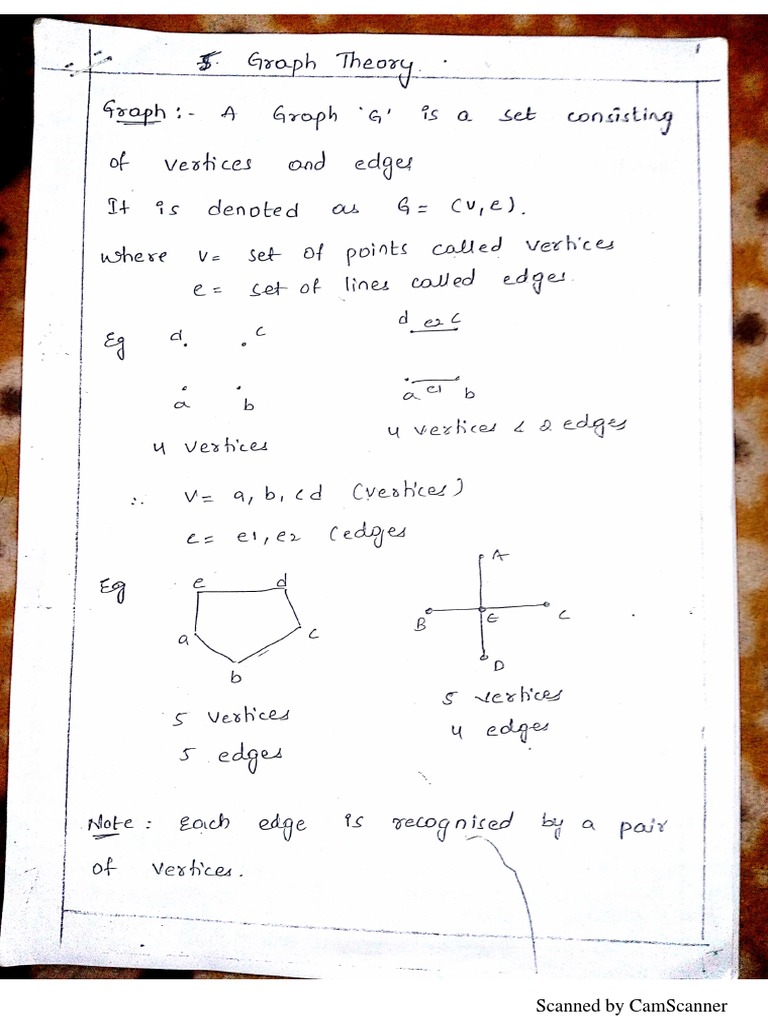 5. Graph Theory.
1
Graph :- A Graph 'G' is a set consisting
of vertices and edges
It is denoted as G = (v, e).
where v = set of points called vertices
e = set of lines called edges.
Eg d. . c d e2 c
a b a e1 b
4 vertices 4 vertices & 2 edges
∴ v = a, b, c d (vertices)
e = e1, e2 (edges
Eg e d A
a c B E C
b D
5 vertices 5 vertices
5 edges 4 edges
Note : Each edge is recognised by a pair
of vertices.
Scanned by CamScanner